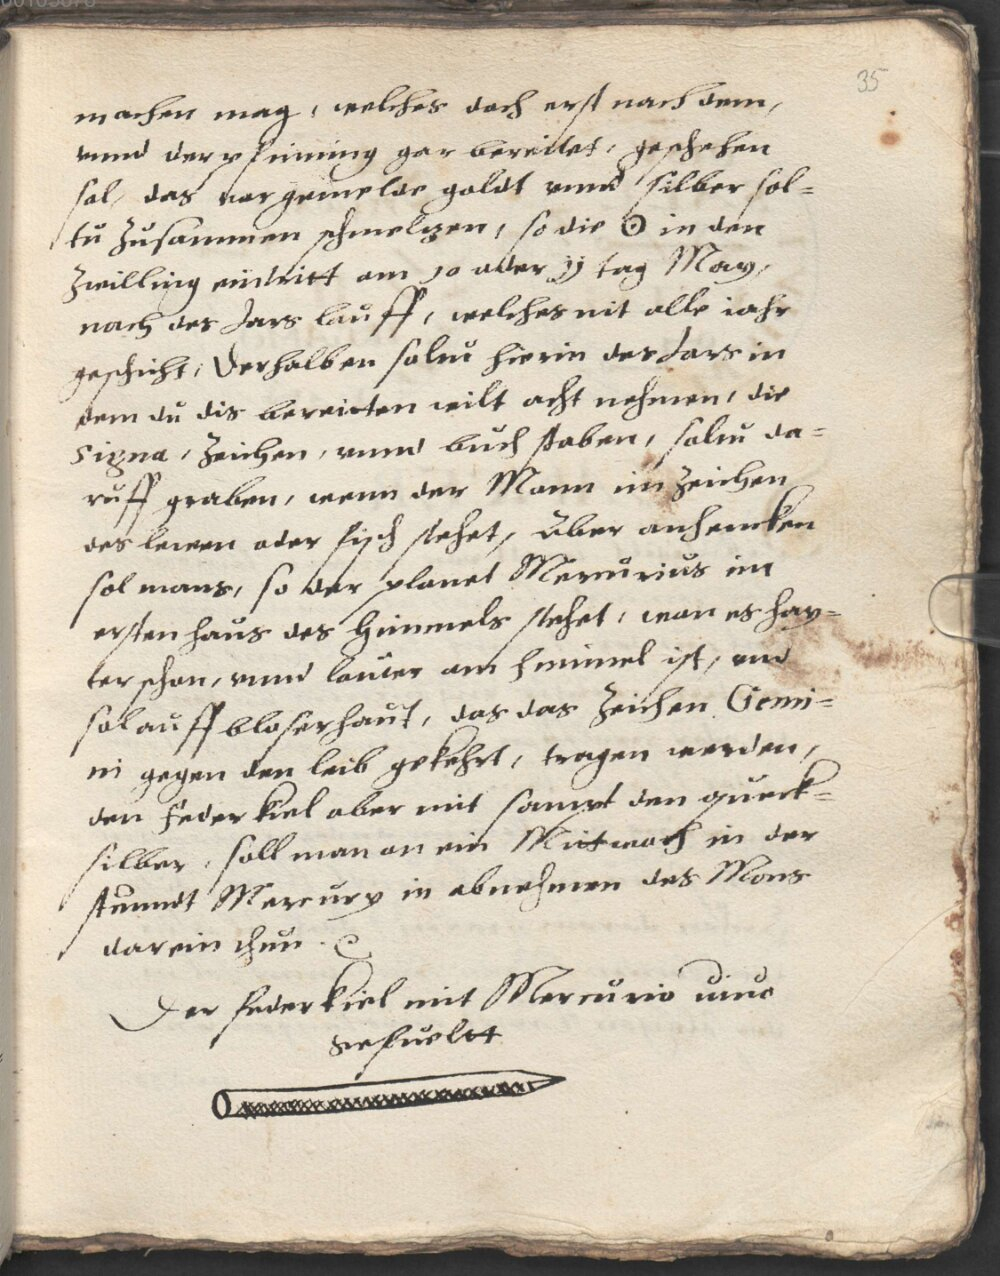 00105078
35
machen mag, welches doch erst nach dem,
vnnd der pfinning gar bereittet, geschehen
sol, das vorgemelde goldt vnnd silber sol=
tu zusammen schmeltzen, so die ☉ in den
Zwilling eintritt am 10 oder 11 tag May,
nach des Jars lauff, welches nit alle iahr
geschicht, Derhalben soltu hierin des Jars in
dem du dis bereitten wilt acht nehmen, die
Signa, Zeichen, vnnd buchstaben, soltu da=
ruff graben, wenn der Monn im Zeichen
des lewen oder fisch stehet, Aber anhencken
sol mans, so der planet Mercurius im
ersten haus des Himmels stehet, wan es hay=
ter schon, vnnd lauter am himmel ist, vnd
sol auff bloser haut, das das Zeichen Gemi=
ni gegen den leib gekehrt, tragen werden,
den Federkiel aber mit sampt den queck=
silber, soll man an ein Mittwoch in der
stunndt Mercury in abnehmen des Mons
darein thun.
Der federkiel mit Mercurio uiuo
gefueltt